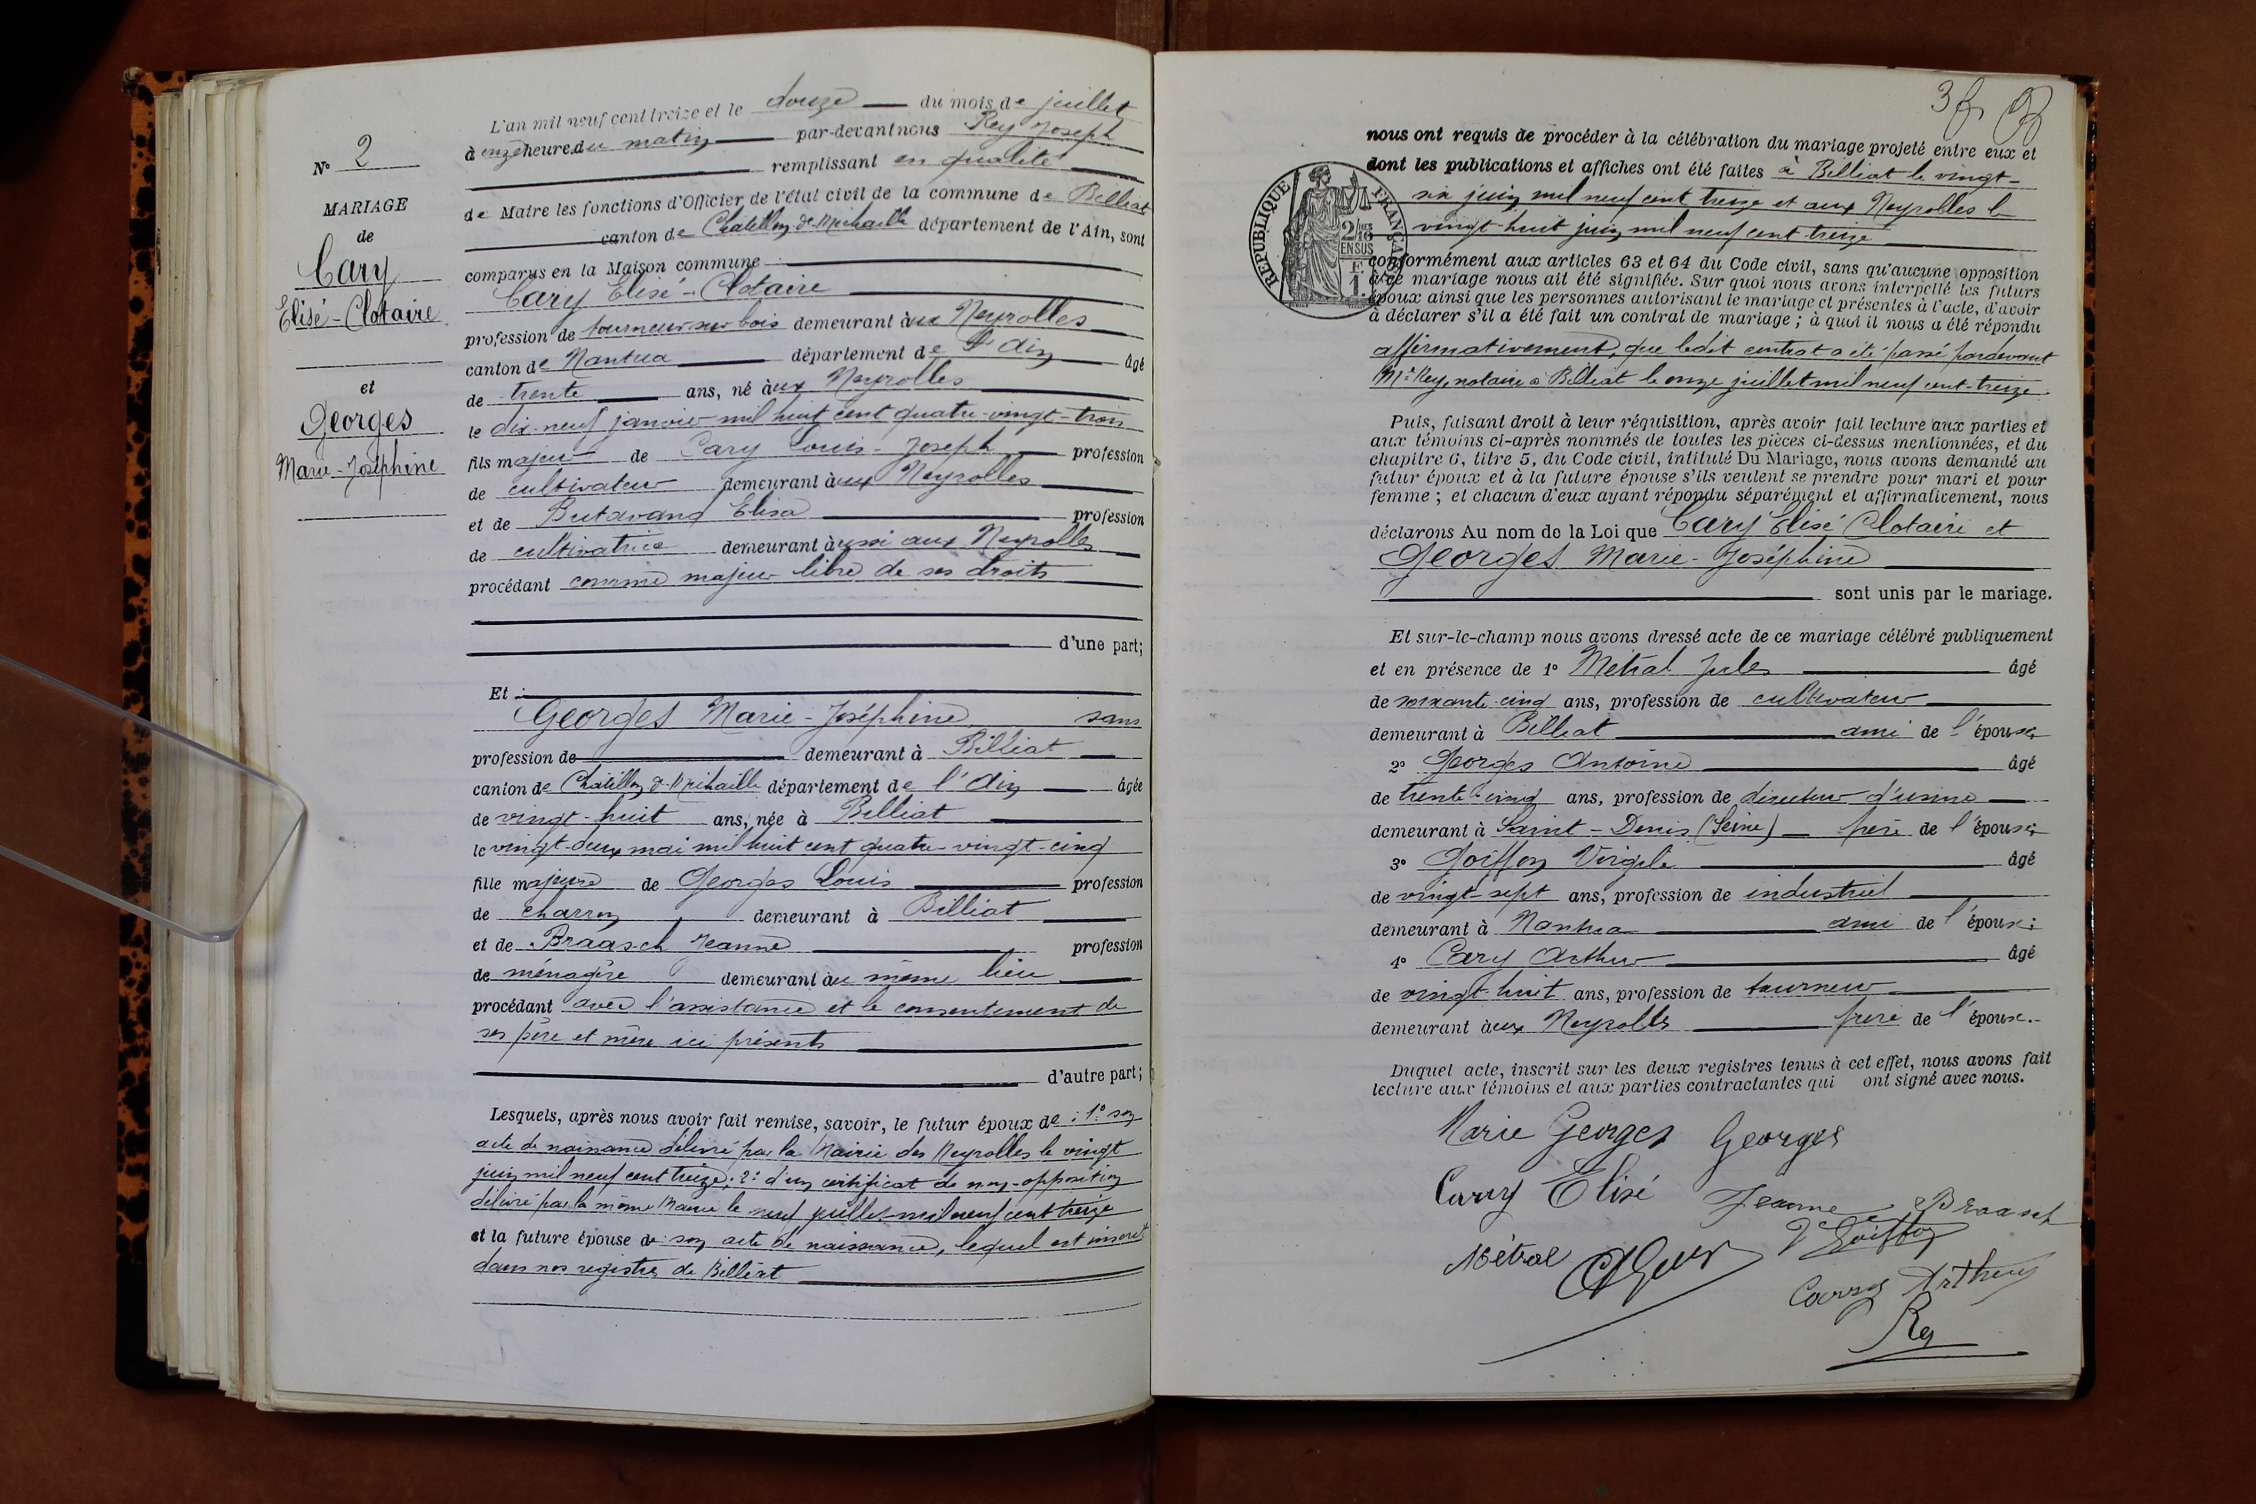 L'an mil neuf cent treize et le douze du mois de juillet
à onze heures du matin par-devant nous Rey Joseph
remplissant en qualité
de Maire les fonctions d'Officier de l'état civil de la commune de Billiat
canton de Châtillon-de-Michaille département de l'Ain, sont
comparus en la Maison commune
Cary Elisé-Clotaire
profession de tourneur sur bois demeurant aux Neyrolles
canton de Nantua département de l'Ain âgé
de trente ans, né aux Neyrolles
le dix-neuf janvier mil huit cent quatre-vingt-trois
fils majeur de Cary Louis-Joseph profession
de cultivateur demeurant aux Neyrolles
et de Butavand Elisa profession
de cultivatrice demeurant aussi aux Neyrolles
procédant comme majeur libre de ses droits
d'une part;
Et :
Georges Marie-Joséphine sans
profession de demeurant à Billiat
canton de Châtillon-d-Michaille département de l'Ain âgée
de vingt-huit ans, née à Billiat
le vingt-deux mai mil huit cent quatre-vingt-cinq
fille majeure de Georges Louis profession
de charron demeurant à Billiat
et de Braasch Jeanne profession
de ménagère demeurant au même lieu
procédant avec l'assistance et le consentement de
ses père et mère ici présents
d'autre part;
Lesquels, après nous avoir fait remise, savoir, le futur époux de : 1° son
acte de naissance délivré par la Mairie des Neyrolles le vingt
juin mil neuf cent treize; 2° d'un certificat de non-opposition
délivré par la même Mairie le neuf juillet mil neuf cent treize
et la future épouse de son acte de naissance, lequel est inscrit
dans nos registres de Billiat
N° 2
MARIAGE
de
Cary
Elisé-Clotaire
et
Georges
Marie-Joséphine
3
nous ont requis de procéder à la célébration du mariage projeté entre eux et
dont les publications et affiches ont été faites à Billiat le vingt-
six juin mil neuf cent treize et aux Neyrolles le
vingt-huit juin mil neuf cent treize
conformément aux articles 63 et 64 du Code civil, sans qu'aucune opposition
à ce mariage nous ait été signifiée. Sur quoi nous avons interpellé les futurs
époux ainsi que les personnes autorisant le mariage et présentes à l'acte, d'avoir
à déclarer s'il a été fait un contrat de mariage; à quoi il nous a été répondu
affirmativement, que ledit contrat a été passé pardevant
Me Rey, notaire à Billiat le onze juillet mil neuf cent-treize.
RÉPUBLIQUE FRANÇAISE
2/10
EN SUS
F.
1.
Puis, faisant droit à leur réquisition, après avoir fait lecture aux parties et
aux témoins ci-après nommés de toutes les pièces ci-dessus mentionnées, et du
chapitre 6, titre 5, du Code civil, intitulé Du Mariage, nous avons demandé au
futur époux et à la future épouse s'ils veulent se prendre pour mari et pour
femme ; et chacun d'eux ayant répondu séparément et affirmativement, nous
déclarons Au nom de la Loi que Cary Elisé Clotaire et
Georges Marie-Joséphine
sont unis par le mariage.
Et sur-le-champ nous avons dressé acte de ce mariage célébré publiquement
et en présence de 1° Métral Jules âgé
de soixante-cinq ans, profession de cultivateur
demeurant à Billiat ami de l'épouse;
2° Georges Antoine âgé
de trente-cinq ans, profession de directeur d'usine
demeurant à Saint-Denis (Seine) frère de l'épouse;
3° Goiffon Virgile âgé
de vingt-sept ans, profession de industriel
demeurant à Nantua ami de l'époux;
4° Cary Arthur âgé
de vingt-huit ans, profession de tourneur
demeurant aux Neyrolles frère de l'époux.
Duquel acte, inscrit sur les deux registres tenus à cet effet, nous avons fait
lecture aux témoins et aux parties contractantes qui ont signé avec nous.
Marie Georges Georges
Cary Elisé Jeanne Braasch
Métral V Goiffon
Cary Arthur
Rey